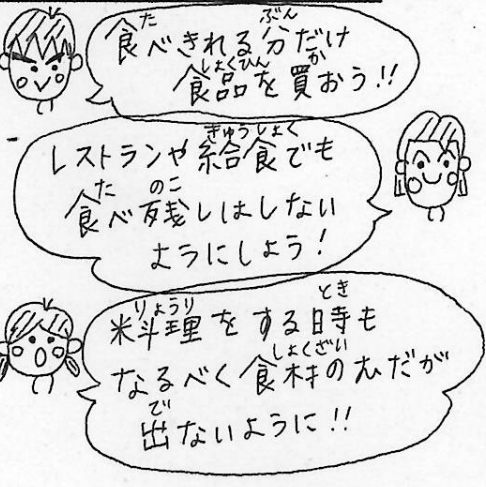 食べきれる分だけ
食品を買おう!!
レストランや給食でも
食べ残しはしない
ようにしよう!
料理をする時も
なるべく食材のむだが
出ないように!!